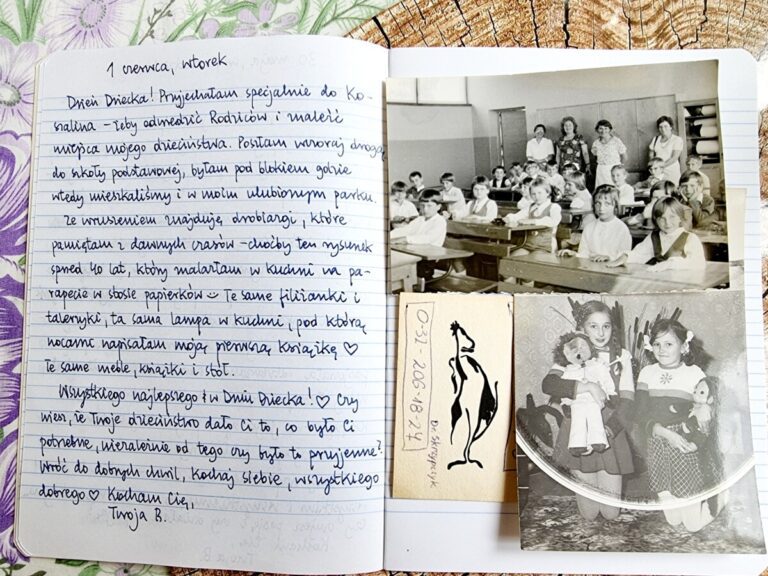 1 czerwca, wtorek
Dzień Dziecka! Przyjechałam specjalnie do Ko-
szalina – żeby odwiedzić Rodziców i znaleźć
miejsca mojego dzieciństwa. Poszłam wczoraj drogą
do szkoły podstawowej, byłam pod blokiem gdzie
wtedy mieszkaliśmy i w moim ulubionym parku.
Ze wzruszeniem znajduję drobiazgi, które
pamiętam z dawnych czasów – choćby ten rysunek
sprzed 40 lat, który malarłam w kuchni na pa-
rapecie w stosie papierków Te same filiżanki i
talerzyki, ta sama lampa w kuchni, pod którą
nocami napisałam moją pierwszą książkę ♡
Te same meble, książki i stół.
Wszystkiego najlepszego w Dniu Dziecka! ♡ Czy
wiesz, że Twoje dzieciństwo dało Ci to, co było Ci
potrzebne, niezależnie od tego czy było to przyjemne?
Wróć do dobrych chwil, kochaj siebie, wszystkiego
dobrego ♡ Kocham Cię,
Twoja B.
031-206-18-24
Dr Skrzypczyk